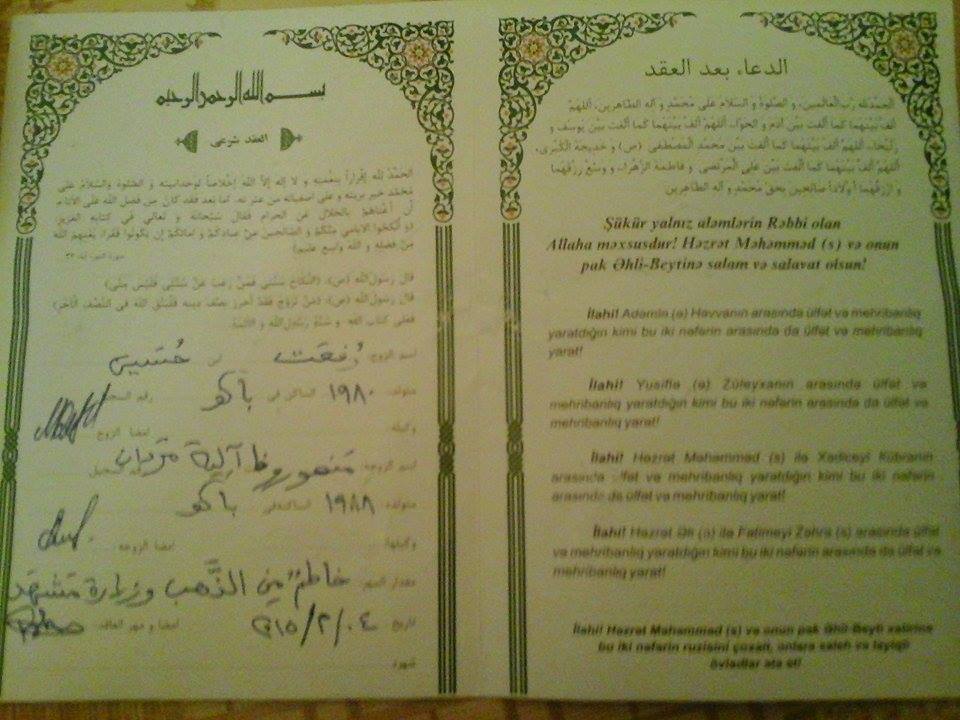 بسم الله الرحمن الرحيم
العقد شرعی
الحَمْدُ لِلَّهِ إقراراً بنعمتِهِ و لا إله إلاَّ اللّه إخلاصاً لوحدانيته و الصّلوة والسّلامُ على
محمّدٍ خير بريته و على اصفيائه من عترته. كما بَعد فقد كان من فضل الله على الأنام
أن أغناهُم بالحلال عن الحرام فقال سُبحانه و تعالى في كتابه العزيز
(و أنكحوا الايامى منكُم و الصّالحين من عبادكُم و امائكُم إن يكُونوا فقراء يغنهم الله
من فضله و الله واسع عليم)
قال رسول الله (ص): (النّكاح سُنّتي فمن رغب عن سُنّتي فليس منّي)
قال رسول الله (ص): (من تزوّج فقد أحرز نصف دينه فليتّق الله في النّصف الآخر)
فعلى كتاب الله و سُنّة رسول الله و الائمة
اسم الزوج: رُفعت ابن حُسَين
متولد: ١٩٨٠ الساكن في باكو رقم السجل
وكيله امضا الزوج
اسم الزوجة: آلية مَردان
متولده ١٩٨٨ الساكنة في باكو
وكيلها: امضا الزوجه
مقدار المهر: خاطمٌ مِن الذَّهب و زيارة مَشهَد
تاريخ امضا و مهر العاقد
شهود
الدعاء بعد العقد
الحَمدُلله رَبّ العالمين، و الصّلوةُ و السّلام على مُحمّدٍ و آله الطّاهرين، اللهُمّ
ألّف بَيْنَهُما كما ألّفت بَيْن آدَمَ و الحَوّاء، اللهُمّ ألّف بَيْنَهُما كما ألّفت بَيْن يوسُف و
زليخا، اللهُمّ ألّف بينَهُما كما ألّفت بَيْن محمد المُصطفى (ص) و خديجة الكُبرى،
اللهُمّ ألّف بينهُما كما ألّفت بَيْن علي المُرتضى و فاطمة الزّهراء، و وسّع رزقهُما
و ارْزُقهُما أولاداً صالحين بحق مُحمّدٍ و آله الطاهرين
Şükür yalnız aləmlərin Rəbbi olan
Allaha məxsusdur! Həzrət Məhəmməd (s) və onun
pak Əhli-Beytinə salam və salavat olsun!
İlahi! Adəmlə (ə) Həvvanın arasında ülfət və mehribanlıq
yaratdığın kimi bu iki nəfərin arasında da ülfət və mehribanlıq
yarat!
İlahi! Yusiflə (ə) Züleyxanın arasında ülfət və
mehribanlıq yaratdığın kimi bu iki nəfərin arasında da ülfət və
mehribanlıq yarat!
İlahi! Həzrət Məhəmməd (s) ilə Xədiceyi Kübranın
arasında ülfət və mehribanlıq yaratdığın kimi bu iki nəfərin
arasında da ülfət və mehribanlıq yarat!
İlahi! Həzrət Əli (ə) ilə Fatimeyi Zəhra (s) arasında ülfət
və mehribanlıq yaratdığın kimi bu iki nəfərin arasında da ülfət və
mehribanlıq yarat!
İlahi! Həzrət Məhəmməd (s) və onun pak Əhli-Beyti xatirinə
bu iki nəfərin ruzisini çoxalt, onlara saleh və layiqli
övladlar əta et!